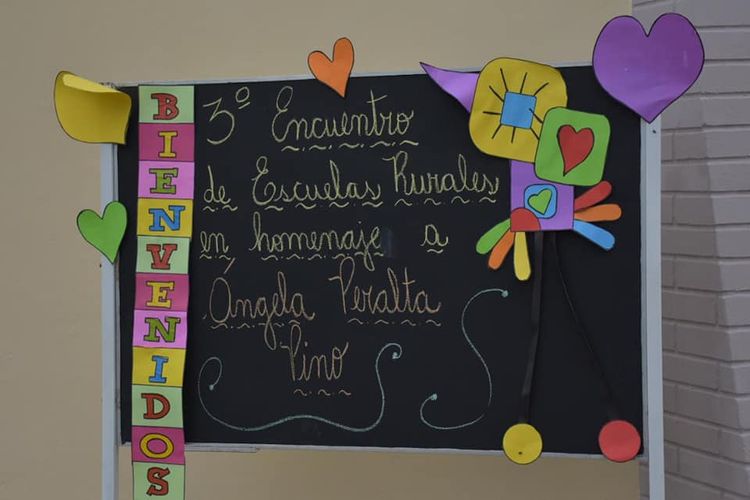 BIENVENIDOS
3º Encuentro
de Escuelas Rurales
en homenaje a
Ángela Peralta
Pino